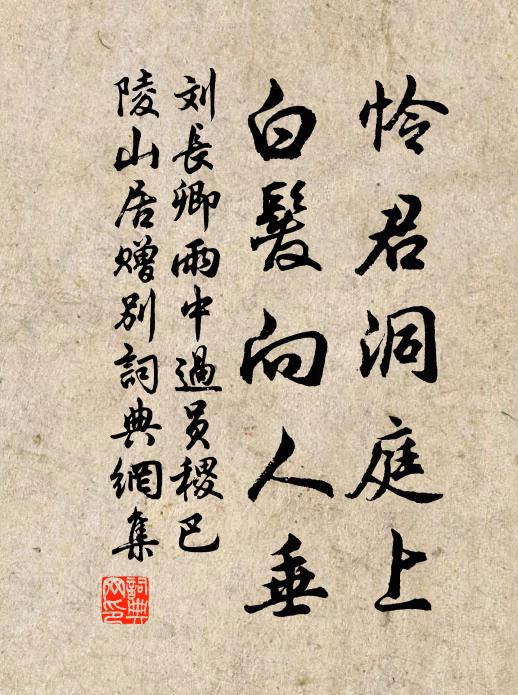 怜君洞庭上
白髮向人垂
刘長卿雨中過员稷巴
陵山居赠别詞典網集
詞典
网印